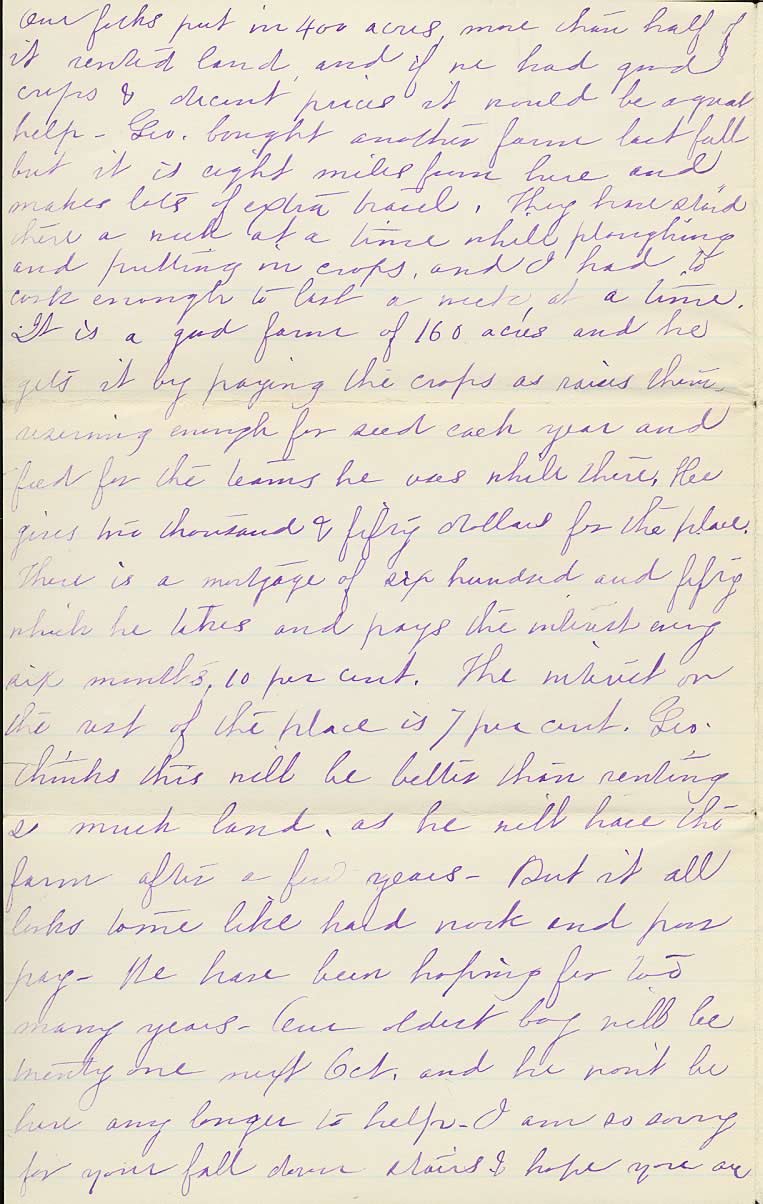 Our folks put in 400 acres, more than half of
it rented land, and if we had good
crops & decent prices it would be a great
help - Geo. bought another farm last fall
but it is eight miles from here and
makes lots of extra travel. They have staid
there a week at a time while ploughing
and putting in crops, and I had to
cook enough to last a week, at a time.
It is a good farm of 160 acres and he
gets it by paying the crops as raises them
reserving enough for seed each year and
feed for the teams he uses while there. Hee
gives two thousand & fifty dollars for the place.
There is a mortgage of six hundred and fifty
which he takes and pays the interest every
six months, 10 per cent. The interest on
the rest of the place is 7 per cent. Geo.
thinks this will be better than renting
so much land, as he will have the
farm after a few years - But it all
looks to me like hard work and poor
pay - We have been hoping for too
many years - Our oldest boy will be
twenty one next Oct. and he won't be
here any longer to help - I am so sorry
for your fall down stairs & hope you are